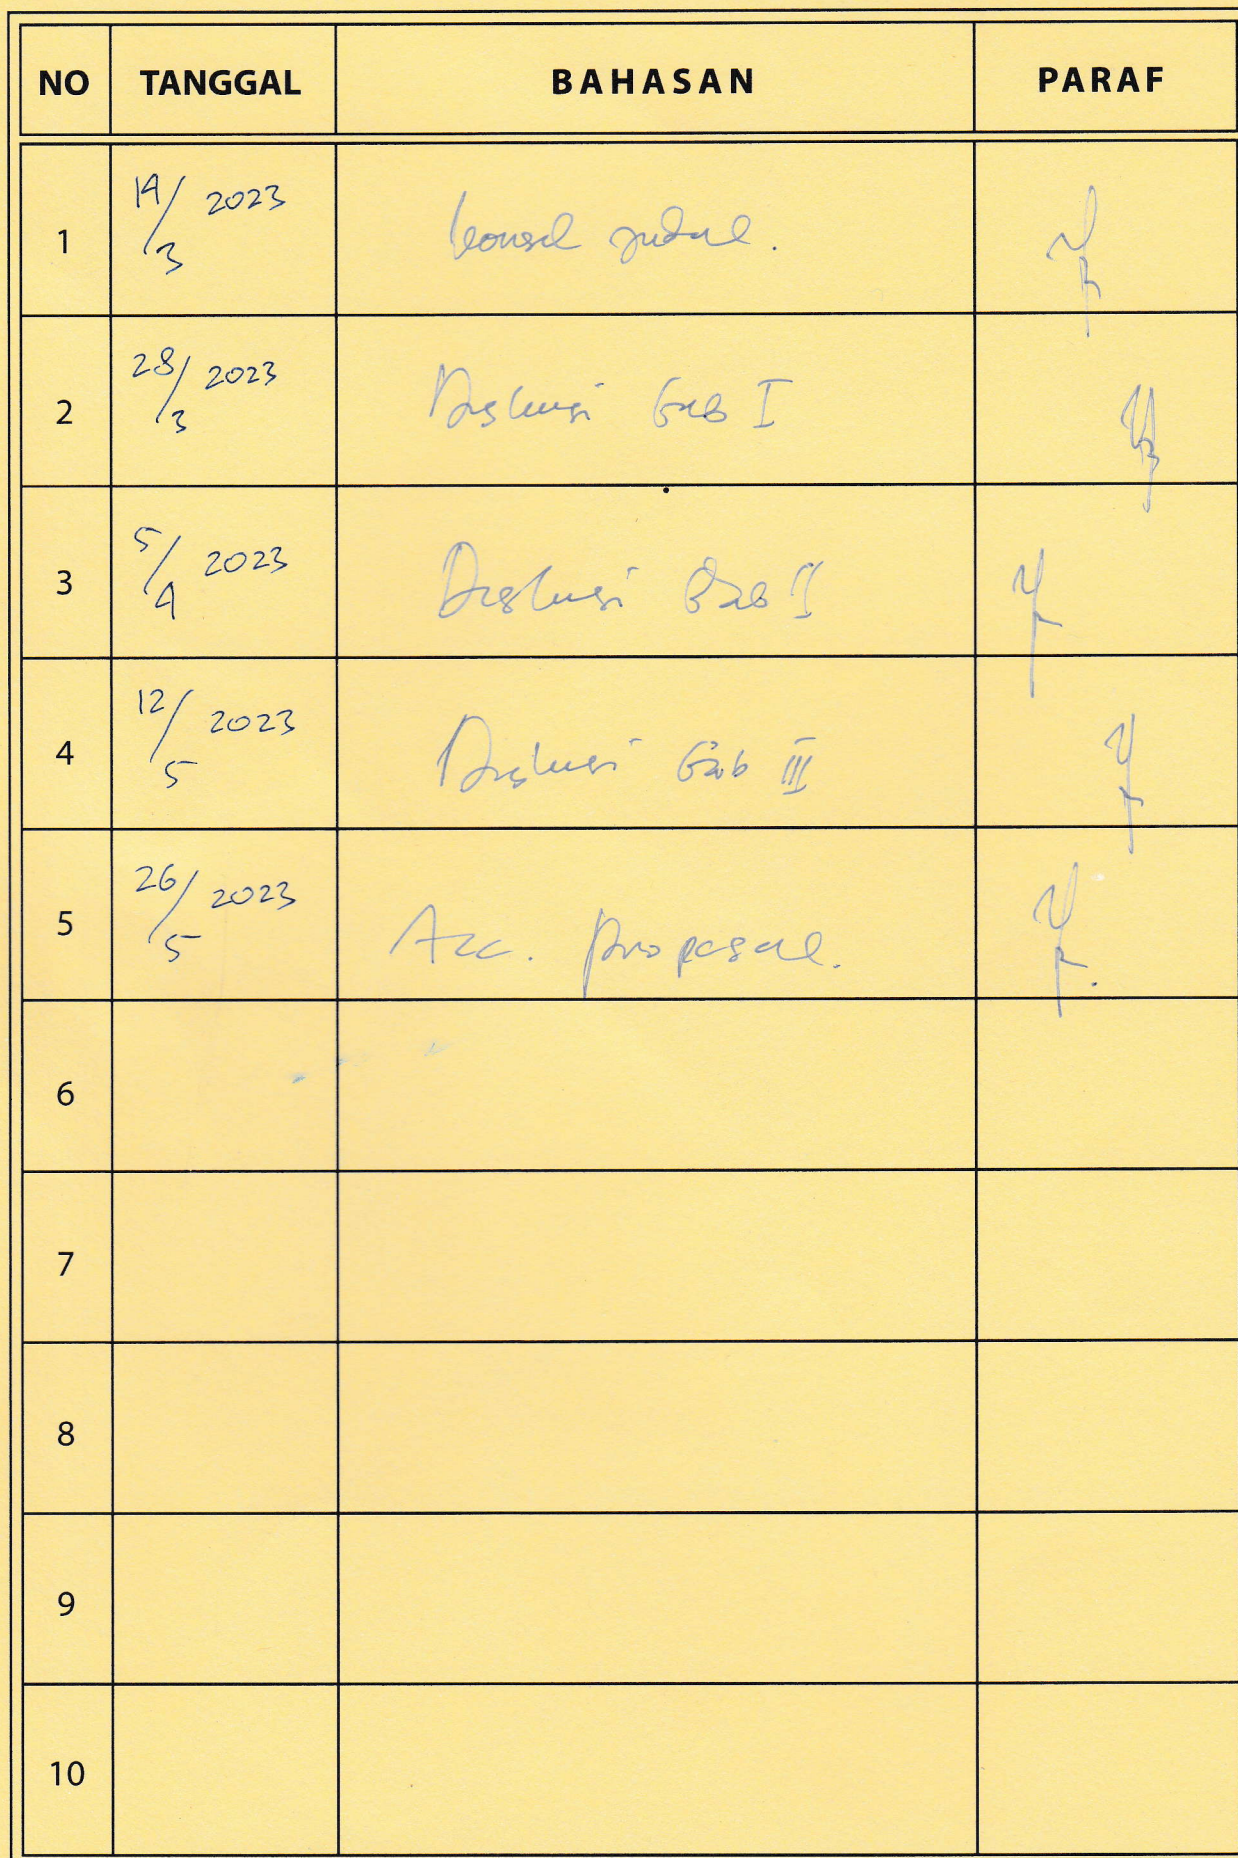 NO TANGGAL BAHASAN PARAF
1 14/3 2023 konsul judul.
2 28/3 2023 Diskusi Bab I
3 5/4 2023 Diskusi Bab II
4 12/5 2023 Diskusi Bab III
5 26/5 2023 Acc. proposal.
6
7
8
9
10